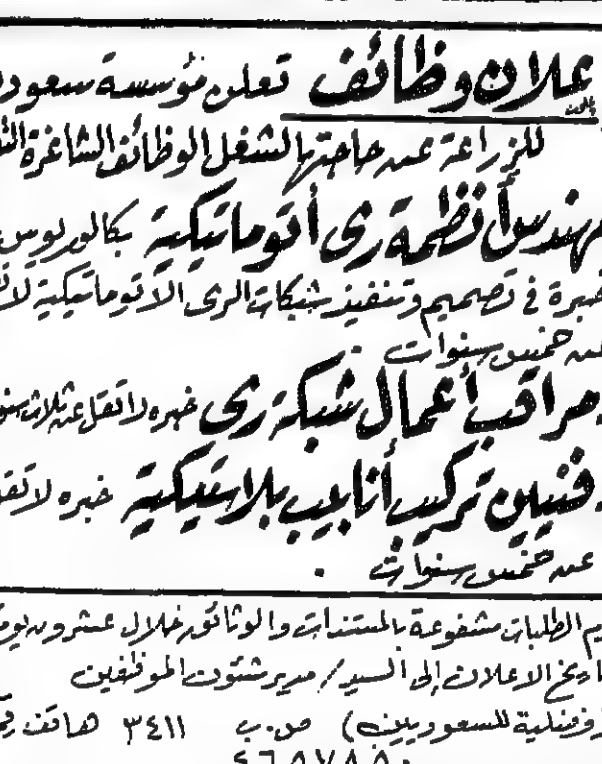 علان وظائف تعلن مؤسسة سعود
للزراعة عن حاجتها لشغل الوظائف الشاغرة
مهندس أنظمة رى أتوماتيكية بكالوريوس
خبرة في تصميم وتنفيذ شبكات الرى الأتوماتيكية لا
عن خمس سنوات .
مراقب أعمال شبكة رى خبره لا تقل عن ثلاث سنو
فنيين تركيب أنابيب بلاستيكية خبره لا تقل
عن خمس سنوات .
م الطلبات مشفوعة بالمستندات والوثائق خلال عشرون يوم
اريخ الاعلان إلى السيد / مدير شئون الموظفين
فضلية للسعوديين) ص.ب ٣٤١١ هاتف